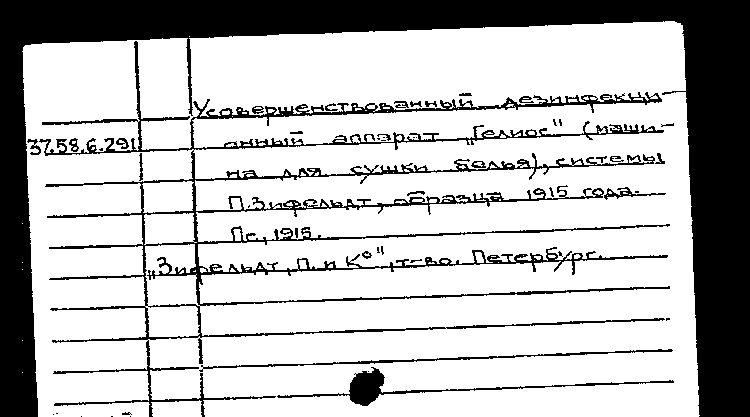 Усовершенствованный дезинфекци-
37.58.6.291 онный аппарат „Гелиос" (маши-
на для сушки белья), системы
П.Зифельдт, образца 1915 года.
Пг., 1915.
„Зифельдт, П. и К°", т-во. Петербург.